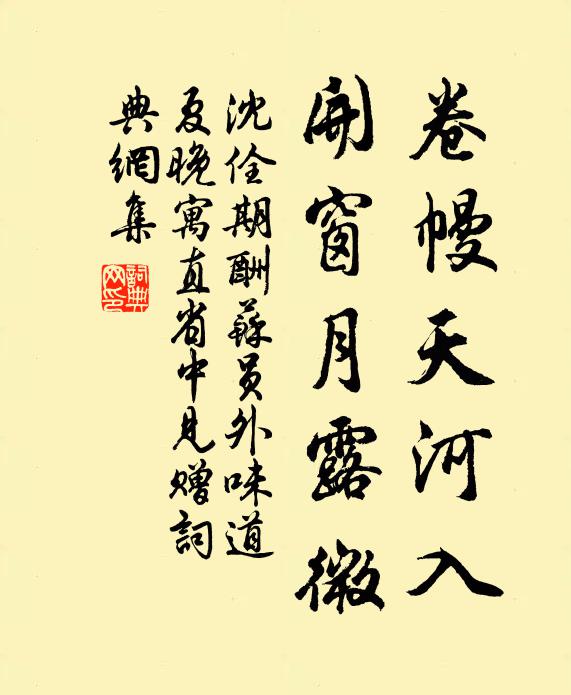 卷幔天河入
開窗月露微
沈佺期酬蘇員外味道
夏晚寓直省中見贈詞
典網集
詞典网印